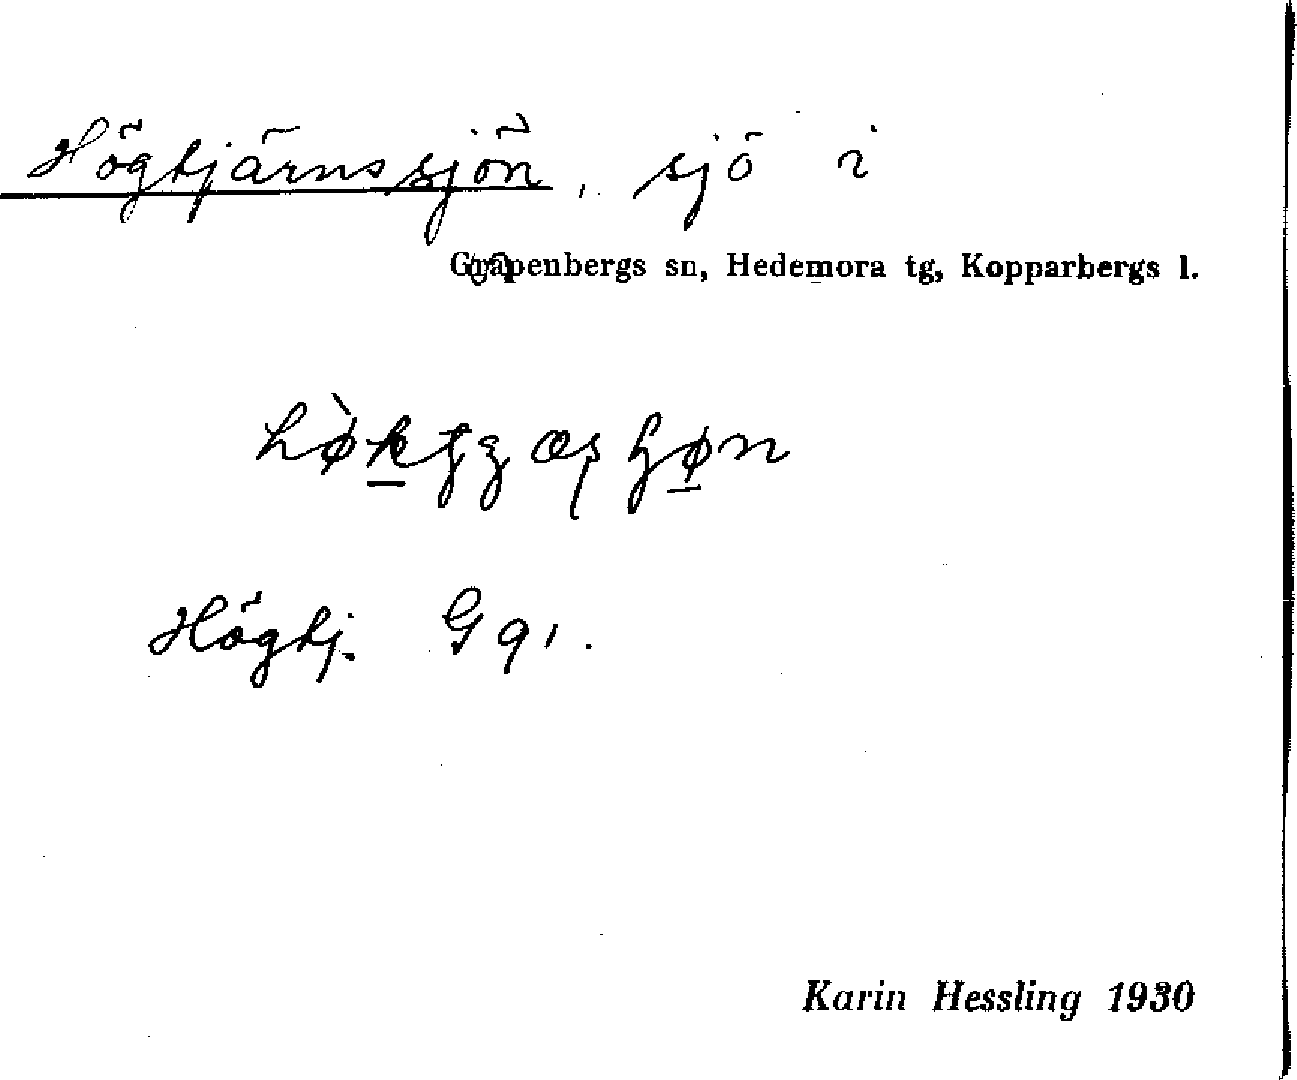 Högtjärnssjön, sjö i
Garpenbergs sn, Hedemora tg, Kopparbergs l.
Högtj. G 91.
Karin Hessling 1930